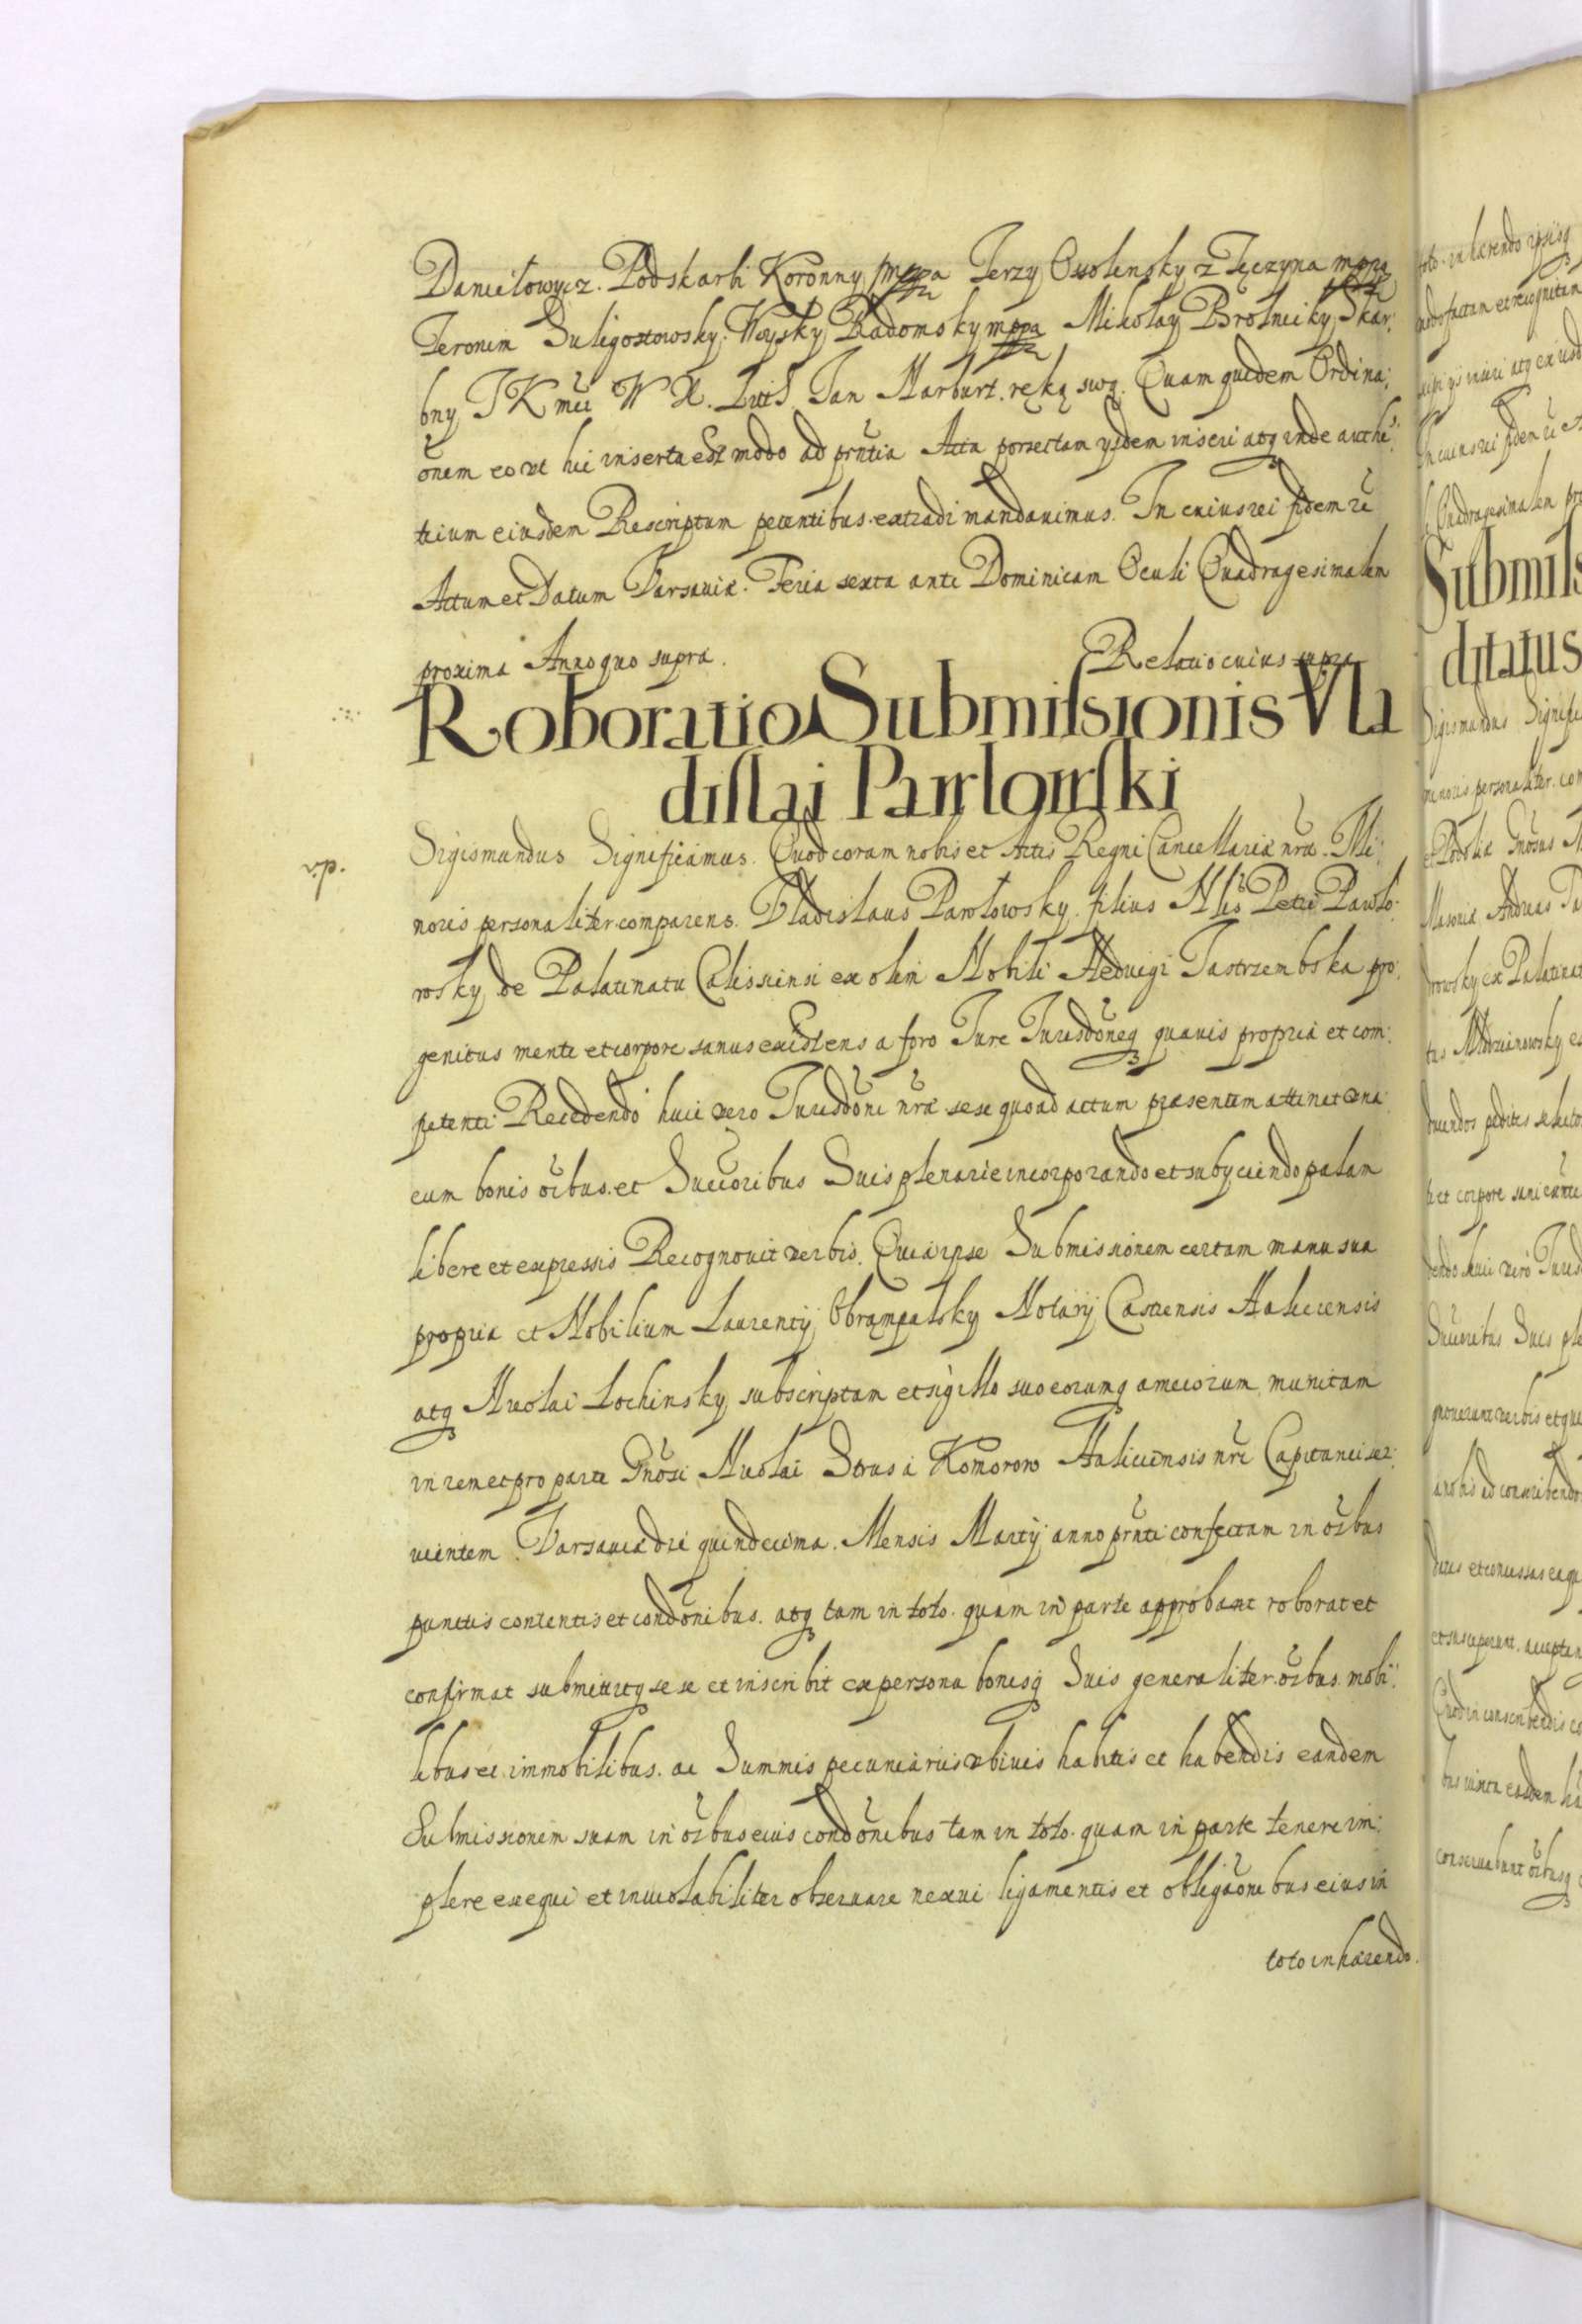 Daniełowycz. Podskarbi Koronny mppa Jerzy Ossolensky z Tęczyna mppa
Jeronim Suligostowsky. Woysky Radomsky mppa Mikołay Brolnicky Skar:
bny J K mci W X. Litt Jan Harburt. ręką swą. Quam quidem Ordina:
õnem eo ut hic inserta est modo ad pñtia Acta porrectam ysdem inseri atq inde authẽ:
ticum eiusdem Rescriptum petentibus extradi mandauimus. In cuius rei fidem ꝛc
Actum et Datum Varsauiæ. Feria sexta ante Dominicam Oculi Quadragesimalem
proxima Anno quo supra. Relatio cuius supra
Roboratio Submissionis Vla
dislai Pawlowski
v.p. Sigismundus Significamus. Quod coram nobis et Actis Regni Cancellariæ nr̃æ. Mi:
noris personaliter comparens. Vladislaus Pawłowsky. filius Nlis Petri Pawło:
wsky de Palatinatu Calissiensi ex olim Nobili Heduigi Jastrzembska pro:
genitus mente et corpore sanus existens a foro Jure Jurisdõneq quauis propria et com:
petenti Recedendo huic vero Jurisdõni nr̃æ sese quoad actum præsentem attinet una
cum bonis oĩbus et Succoribus Suis plenarie incorporando et subyciendo palam
libere et expressis Recognouit verbis. Quia ipse Submissionem certam manu sua
propria et Nobilium Laurenty Obrąmpalsky Notarij Castrensis Haliciensis
atq Nicolai Lochinsky subscriptam et sigillo suo eorumq amicorum munitam
in rem et pro parte Gnõsi Nicolai Strus a Komorow Haliciensis nr̃i Capitanei ser:
uientem. Varsauiæ die quindecima. Mensis Martij anno pr̃nti confectam in oĩbus
punctis contentis et condõnibus. atq tam in toto. quam in parte approbant roborat et
confirmat submittitq sese et inscribit ex persona bonisq Suis generaliter oĩbus. mobi:
libus et immobilibus. ac Summis pecuniarijs vbiuis habitis et habendis eandem
Submissionem suam in oĩbus eius condõnibus tam in toto. quam in parte tenere im:
plere exequi et inuiolabiliter obseruare nexui ligamentis et obligãonibus eius in
toto inhærendo.